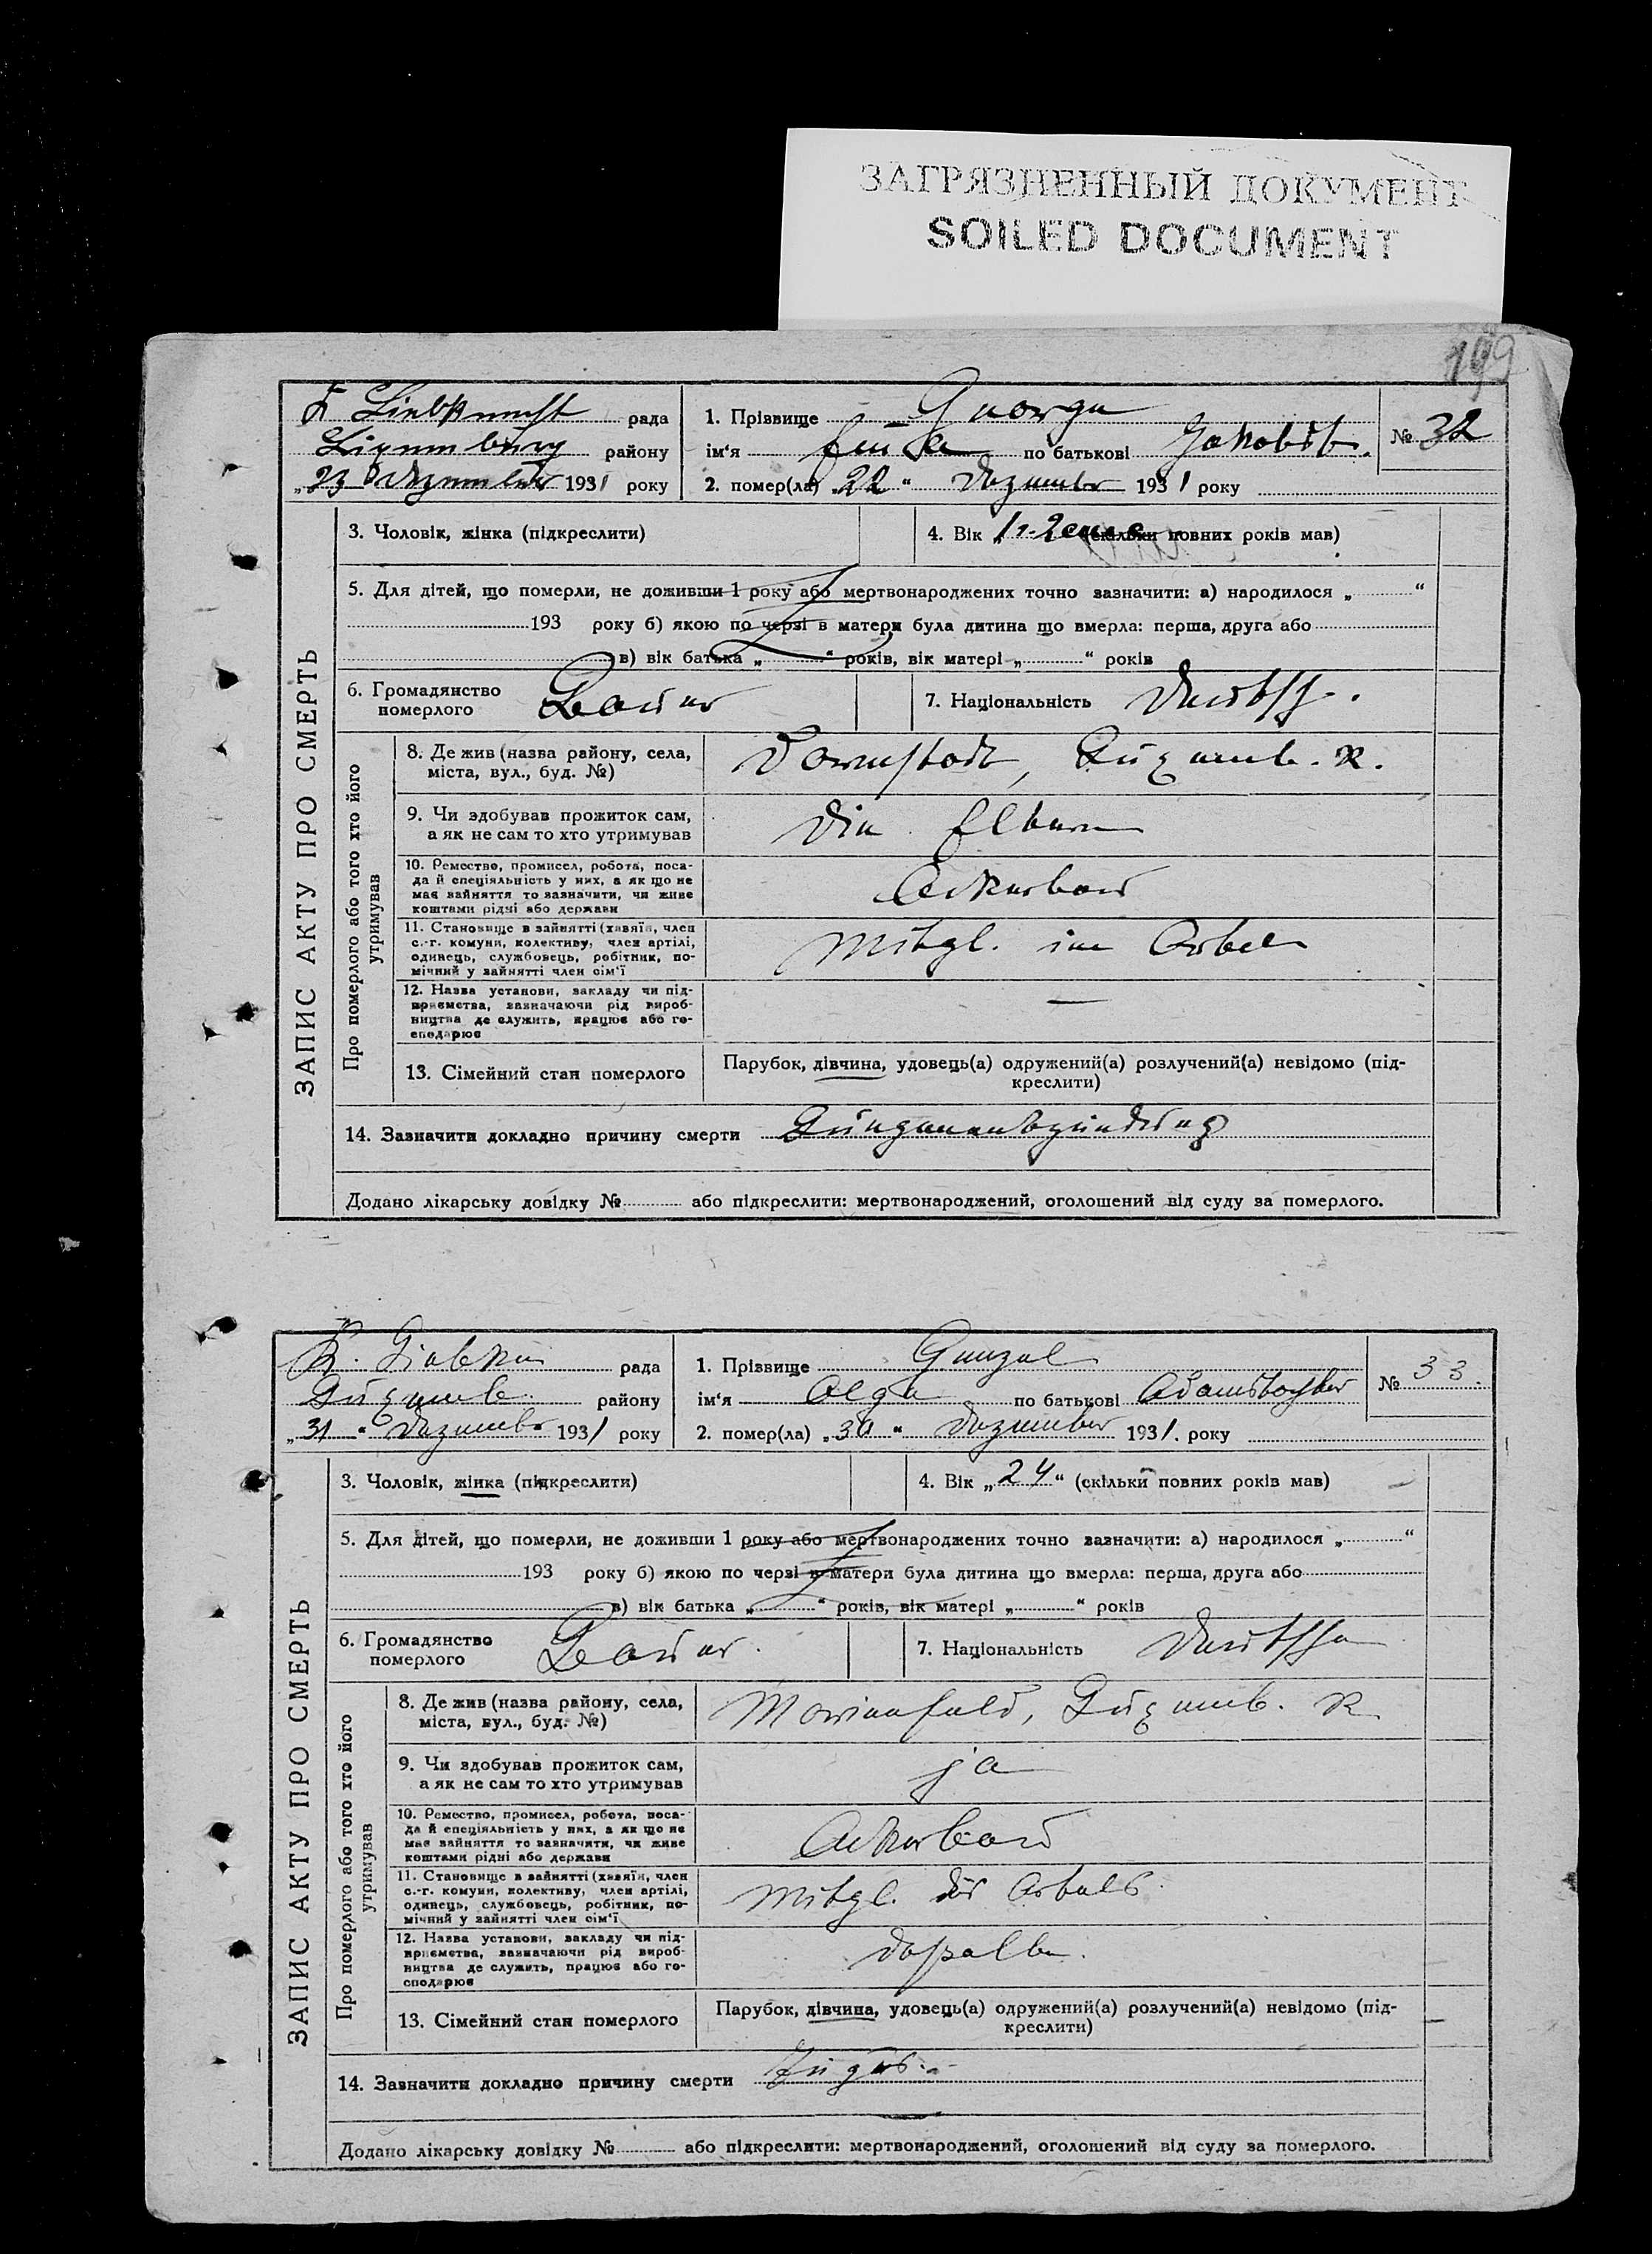 ЗАГРЯЗНЕННЫЙ ДОКУМЕНТ
SOILED DOCUMENT
199
K Liebknecht рада
1. Прізвище George
№ 32
Luxemburg району
ім‘я по батькові Jakobst.
„23 Dezember 1931 року
2. помер(ла) „22“ Dezember 1931 року
ЗАПИС АКТУ ПРО СМЕРТЬ
3. Чоловік, жінка (підкреслити)
4. Вік (скільки повних років мав)
5. Для дітей, що померли, не доживши 1 року або мертвонароджених точно зазначити: а) народилося „ “
193 року б) якою по черзі в матери була дитина що вмерла: перша, друга або
в) вік батька „ “ років, вік матері „ “ років
6. Громадянство померлого Bauer
7. Національність Deutsch.
Про померлого або того хто його утримував
8. Де жив (назва району, села, міста, вул., буд. №)
Darmstadt, Luxemb. R.
9. Чи здобував прожиток сам, а як не сам то хто утримував
Die Eltern
10. Ремество, промисел, робота, посада й спеціяльність у них, а як що не має зайняття то зазначити, чи живе коштами рідні або держави
Ackerbau
11. Становище в зайнятті (хазяїн, член с.-г. комуни, колективу, член артілі, одинець, службовець, робітник, помічний у зайнятті член сім‘ї
Mitgl. im Artel
12. Назва установи, закладу чи підприємства, зазначаючи рід виробництва де служить, працює або господарює
—
13. Сімейний стан померлого
Парубок, дівчина, удовець(а) одружений(а) розлучений(а) невідомо (підкреслити)
14. Зазначити докладно причину смерти Lungenentzündung
Додано лікарську довідку № або підкреслити: мертвонароджений, оголошений від суду за померлого.
K. Liebkn рада
1. Прізвище Genzel
№ 33.
Luxemb. району
ім‘я Olga по батькові Adamstochter
„31“ Dezember 1931 року
2. помер(ла) „30“ Dezember 1931. року
ЗАПИС АКТУ ПРО СМЕРТЬ
3. Чоловік, жінка (підкреслити)
4. Вік „24“ (скільки повних років мав)
5. Для дітей, що померли, не доживши 1 року або мертвонароджених точно зазначити: а) народилося „ “
193 року б) якою по черзі в матери була дитина що вмерла: перша, друга або
в) вік батька „ “ років, вік матері „ “ років
6. Громадянство померлого Bauer.
7. Національність Deutsche
Про померлого або того хто його утримував
8. Де жив (назва району, села, міста, вул., буд. №)
Marienfeld, Luxemb. R
9. Чи здобував прожиток сам, а як не сам то хто утримував
ja
10. Ремество, промисел, робота, посада й спеціяльність у них, а як що не має зайняття то зазначити, чи живе коштами рідні або держави
Ackerbau
11. Становище в зайнятті (хазяїн, член с.-г. комуни, колективу, член артілі, одинець, службовець, робітник, помічний у зайнятті член сім‘ї
Mitgl. des Artels
12. Назва установи, закладу чи підприємства, зазначаючи рід виробництва де служить, працює або господарює
dasselbe.
13. Сімейний стан померлого
Парубок, дівчина, удовець(а) одружений(а) розлучений(а) невідомо (підкреслити)
14. Зазначити докладно причину смерти
Додано лікарську довідку № або підкреслити: мертвонароджений, оголошений від суду за померлого.